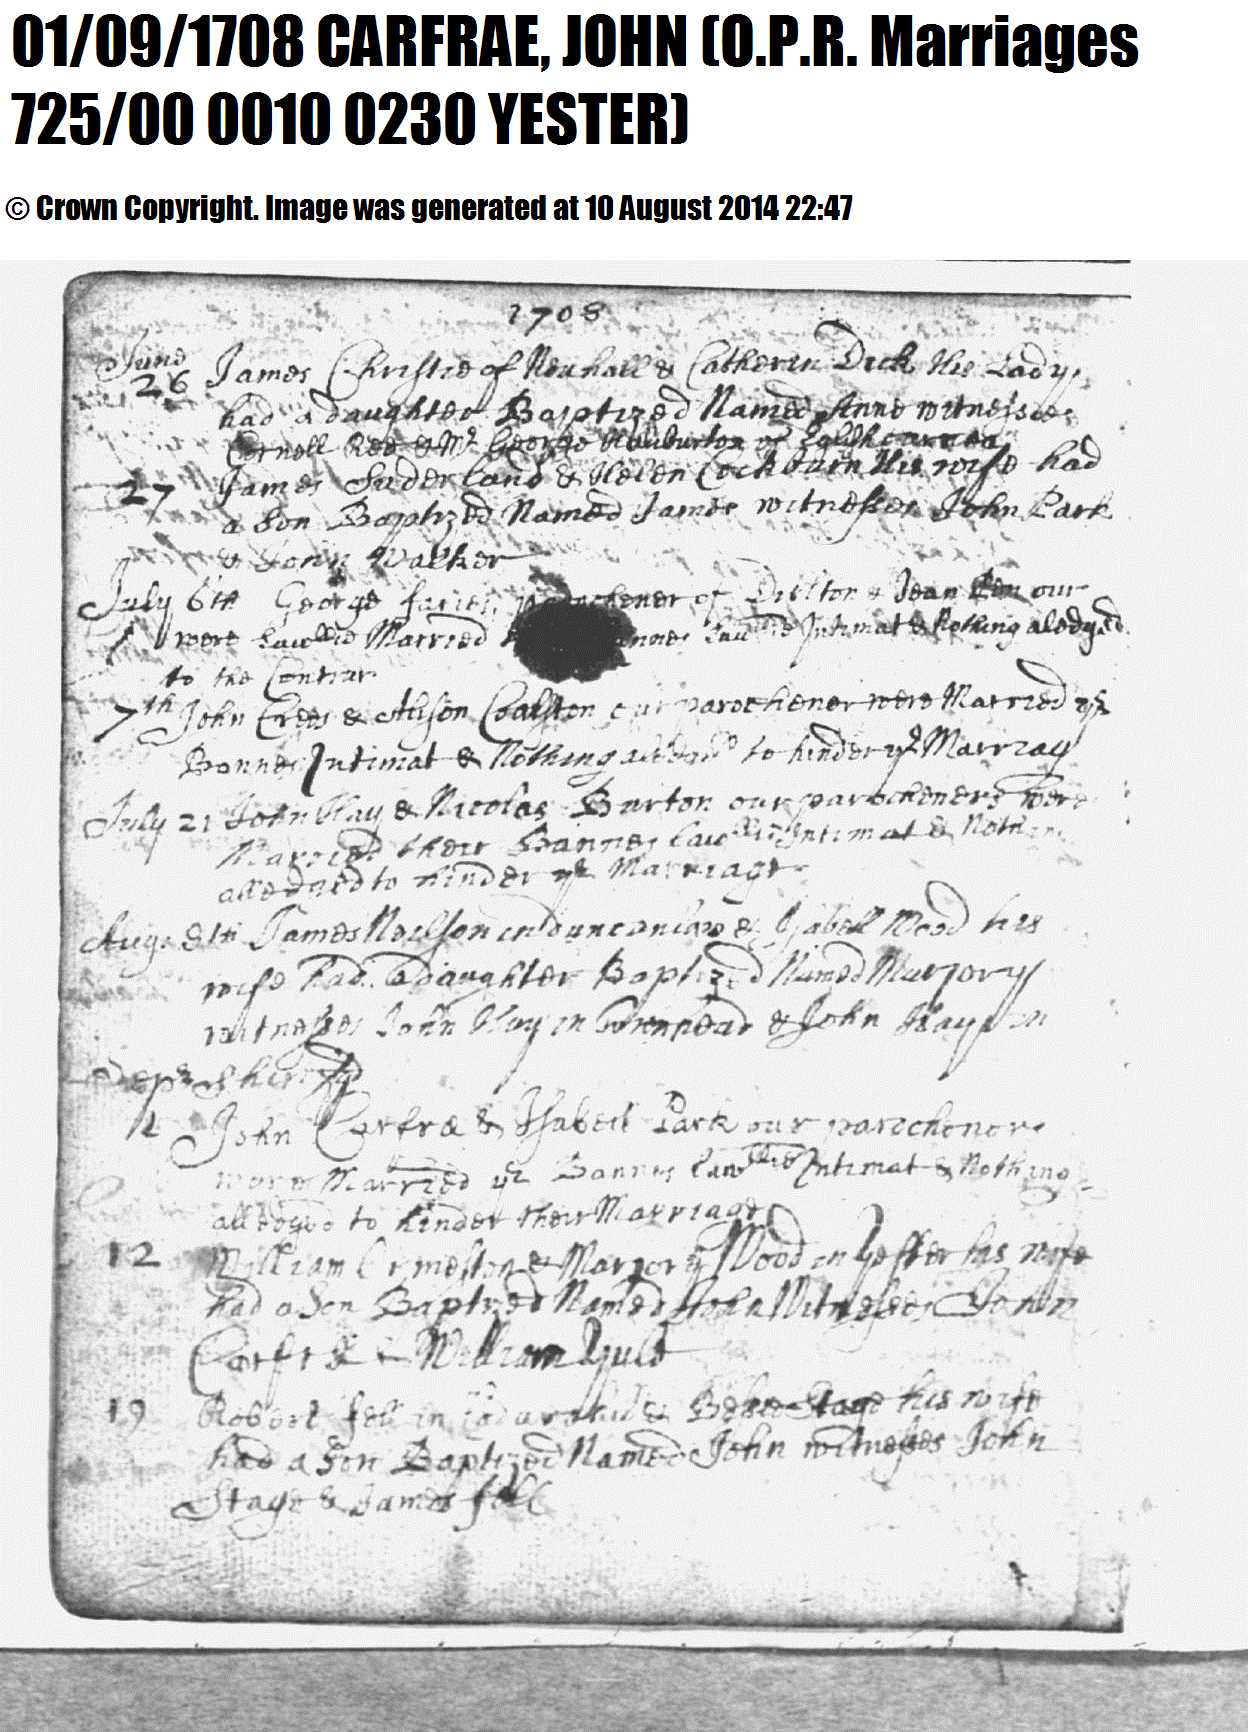 01/09/1708 CARFRAE, JOHN (O.P.R. Marriages
725/00 0010 0230 YESTER)
© Crown Copyright. Image was generated at 10 August 2014 22:47
1708
June
26 James Christie of Neuhall & Catheren Dick His Lady
had a daughter Baptized Named Anne witnesses
Cornell Ree & Mr George
27 James Suderland & Helen Cockburn His wife had
a Son Baptized Named James witnesses John Park
& John Walker
July 6th George of & Jean our
were Married Intimat & Nothing aledged
to the Contrar
7th John & Alison our parochener were Married yr
Bannes Intimat & Nothing to hinder yr Marriag
July 21 John Hay & Nicolas Burton our parocheners were
Married their Bannes Intimat & Nothing
alledged to hinder yr Marriage
Aug. 8th James Neilson in Duncanlaw & Isabell Wood his
wife had a Daughter Baptized Named Marjory
witnesses John Hay in & John Hay in
Sepr
1 John Carfrae & Isabell Park our parocheners
were Married yr Bannes Intimat & Nothing
alledged to hinder their Marriage
12 William & Marjory Wood in his wife
had a Son Baptized Named John Witnesses John
Carfrae & William
19 Robert in & Stage his wife
had a Son Baptized Named John witnesses John
Stage & James fell